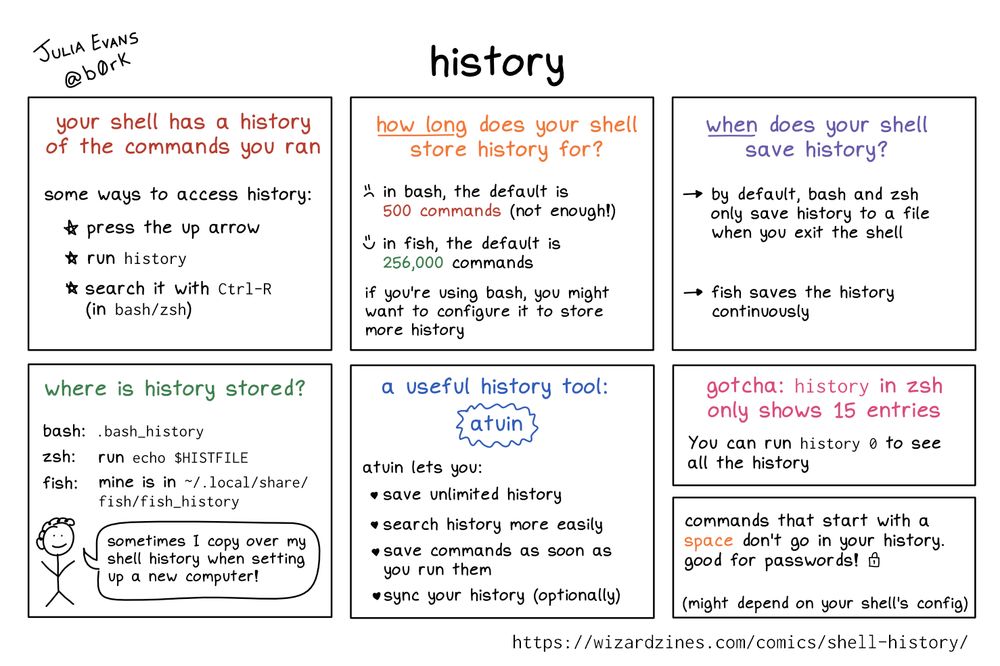 JULIA EVANS
@b0rk
history
your shell has a history
of the commands you ran
some ways to access history:
press the up arrow
run history
search it with Ctrl-R
(in bash/zsh)
how long does your shell
store history for?
in bash, the default is
500 commands (not enough!)
in fish, the default is
256,000 commands
if you're using bash, you might
want to configure it to store
more history
when does your shell
save history?
→ by default, bash and zsh
only save history to a file
when you exit the shell
→ fish saves the history
continuously
where is history stored?
bash: .bash_history
zsh: run echo $HISTFILE
fish: mine is in ~/.local/share/
fish/fish_history
sometimes I copy over my
shell history when setting
up a new computer!
a useful history tool:
atuin
atuin lets you:
♥ save unlimited history
♥ search history more easily
♥ save commands as soon as
you run them
♥ sync your history (optionally)
gotcha: history in zsh
only shows 15 entries
You can run history 0 to see
all the history
commands that start with a
space don't go in your history.
good for passwords!
(might depend on your shell's config)
https://wizardzines.com/comics/shell-history/